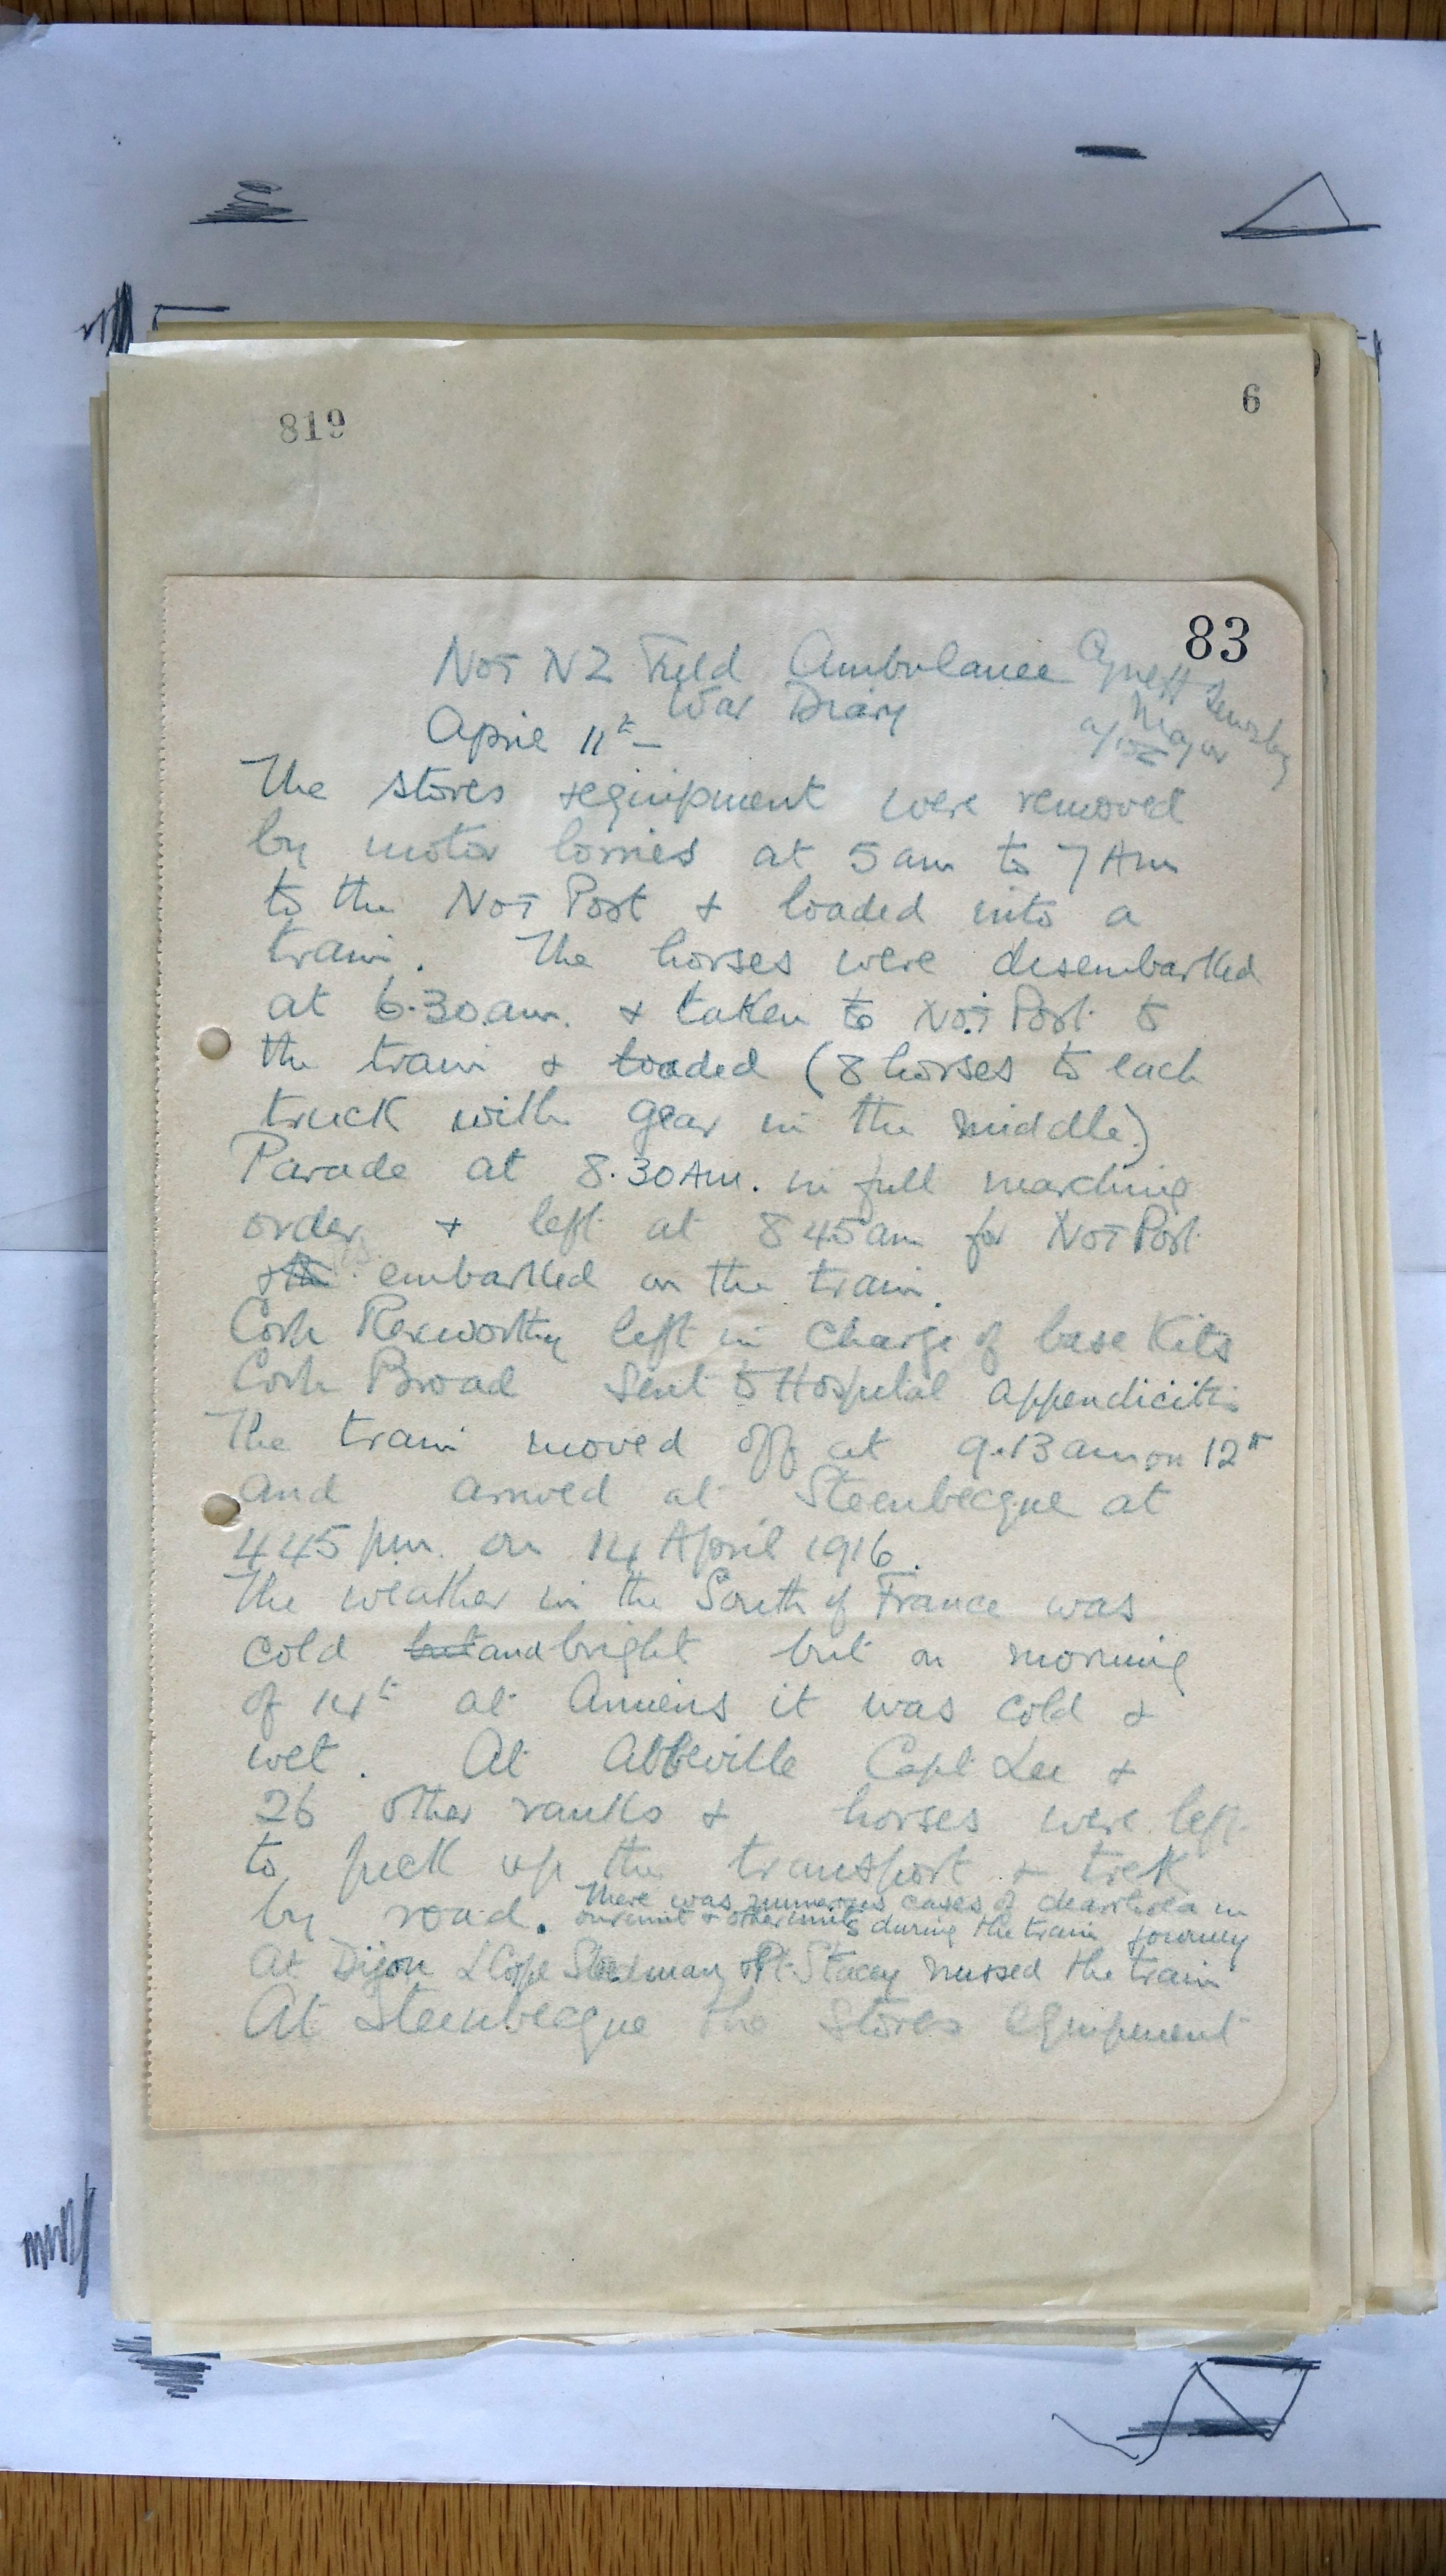 819
6
83
No 1 N Z Field Ambulance
War Diary
Major
April 11th —
The stores & equipment were removed
by motor lorries at 5 am to 7 Am
to the No 1 Post & loaded into a
train. The horses were disembarked
at 6.30.am. & taken to No.1 Post to
the train & loaded (8 horses to each
truck with gear in the middle)
Parade at 8.30 Am. in full marching
order & left at 8 45 am for No 1 Post
& embarked on the train.
Corp Rexworthy left in charge of base Kits
Corp Broad sent to Hospital appendicitis
The train moved off at 9.13 am on 12th
and arrived at Steenbecque at
4 45 pm. on 14 April 1916.
The weather in the South of France was
cold but and bright but on morning
of 14th at Amiens it was cold &
wet. At Abbeville Capt Lee &
26 other ranks & horses were left
to pick up the transport & trek
by road. There was numerous cases of diarrhoea in
our unit & other units during the train journey
At Dijon L Corpl Stedman & Pt Stacey missed the train
At Steenbecque the stores equipment